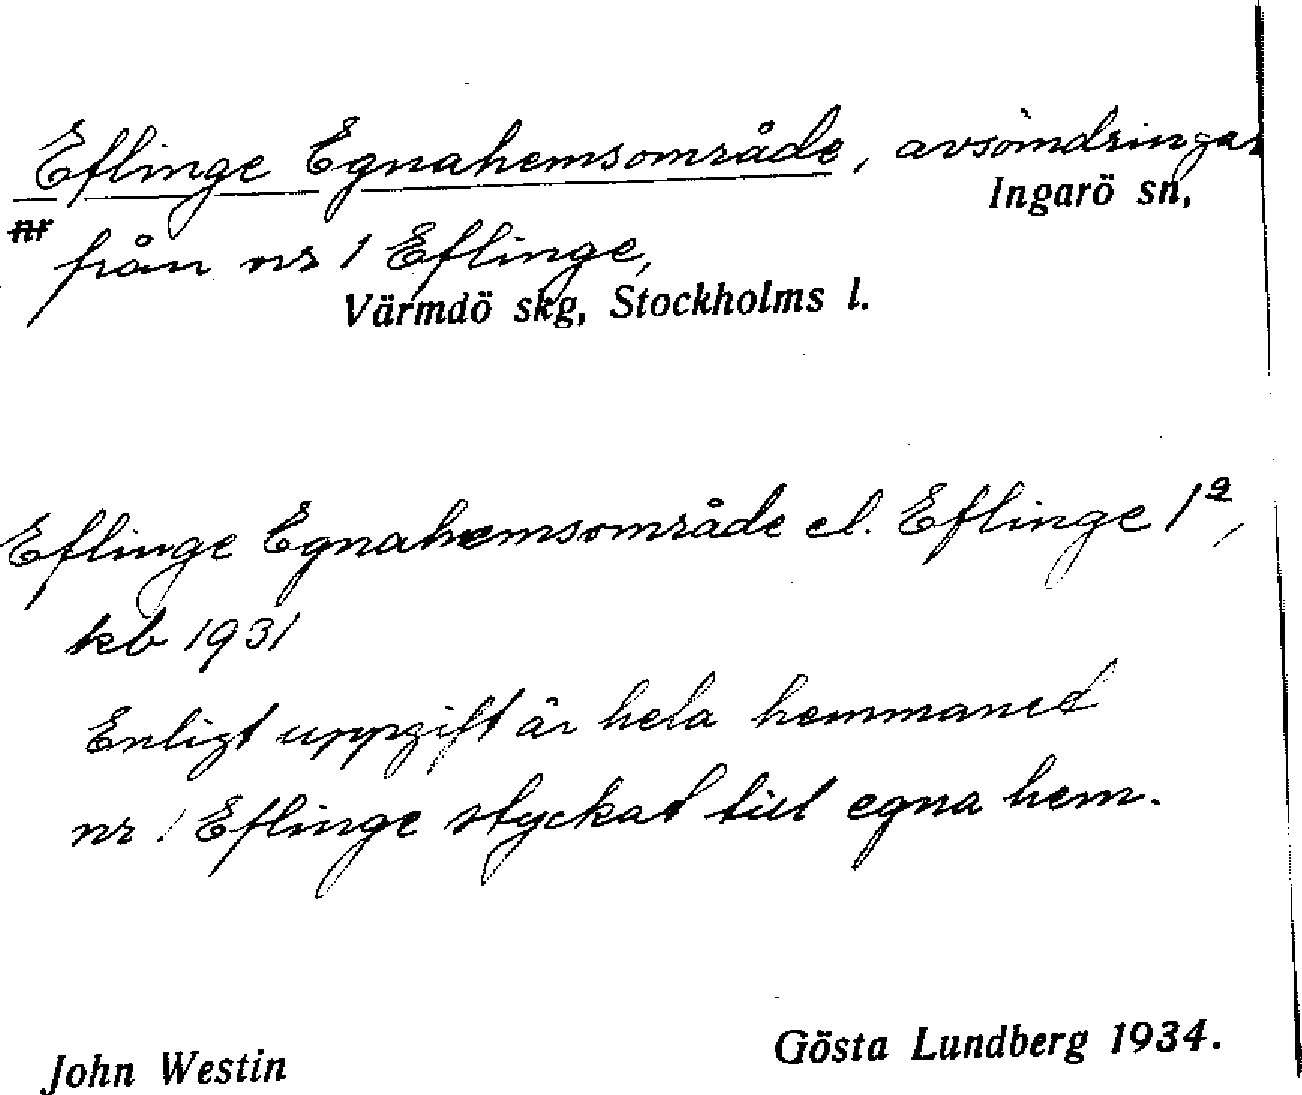 Eflinge Egnahemsområde, avsöndringar
Ingarö sn,
nr
från nr 1 Eflinge,
Värmdö skg, Stockholms l.
Eflinge Egnahemsområde el. Eflinge 1ª,
kb 1931
Enligt uppgift är hela hemmanet
nr 1 Eflinge styckat till egna hem.
John Westin
Gösta Lundberg 1934.